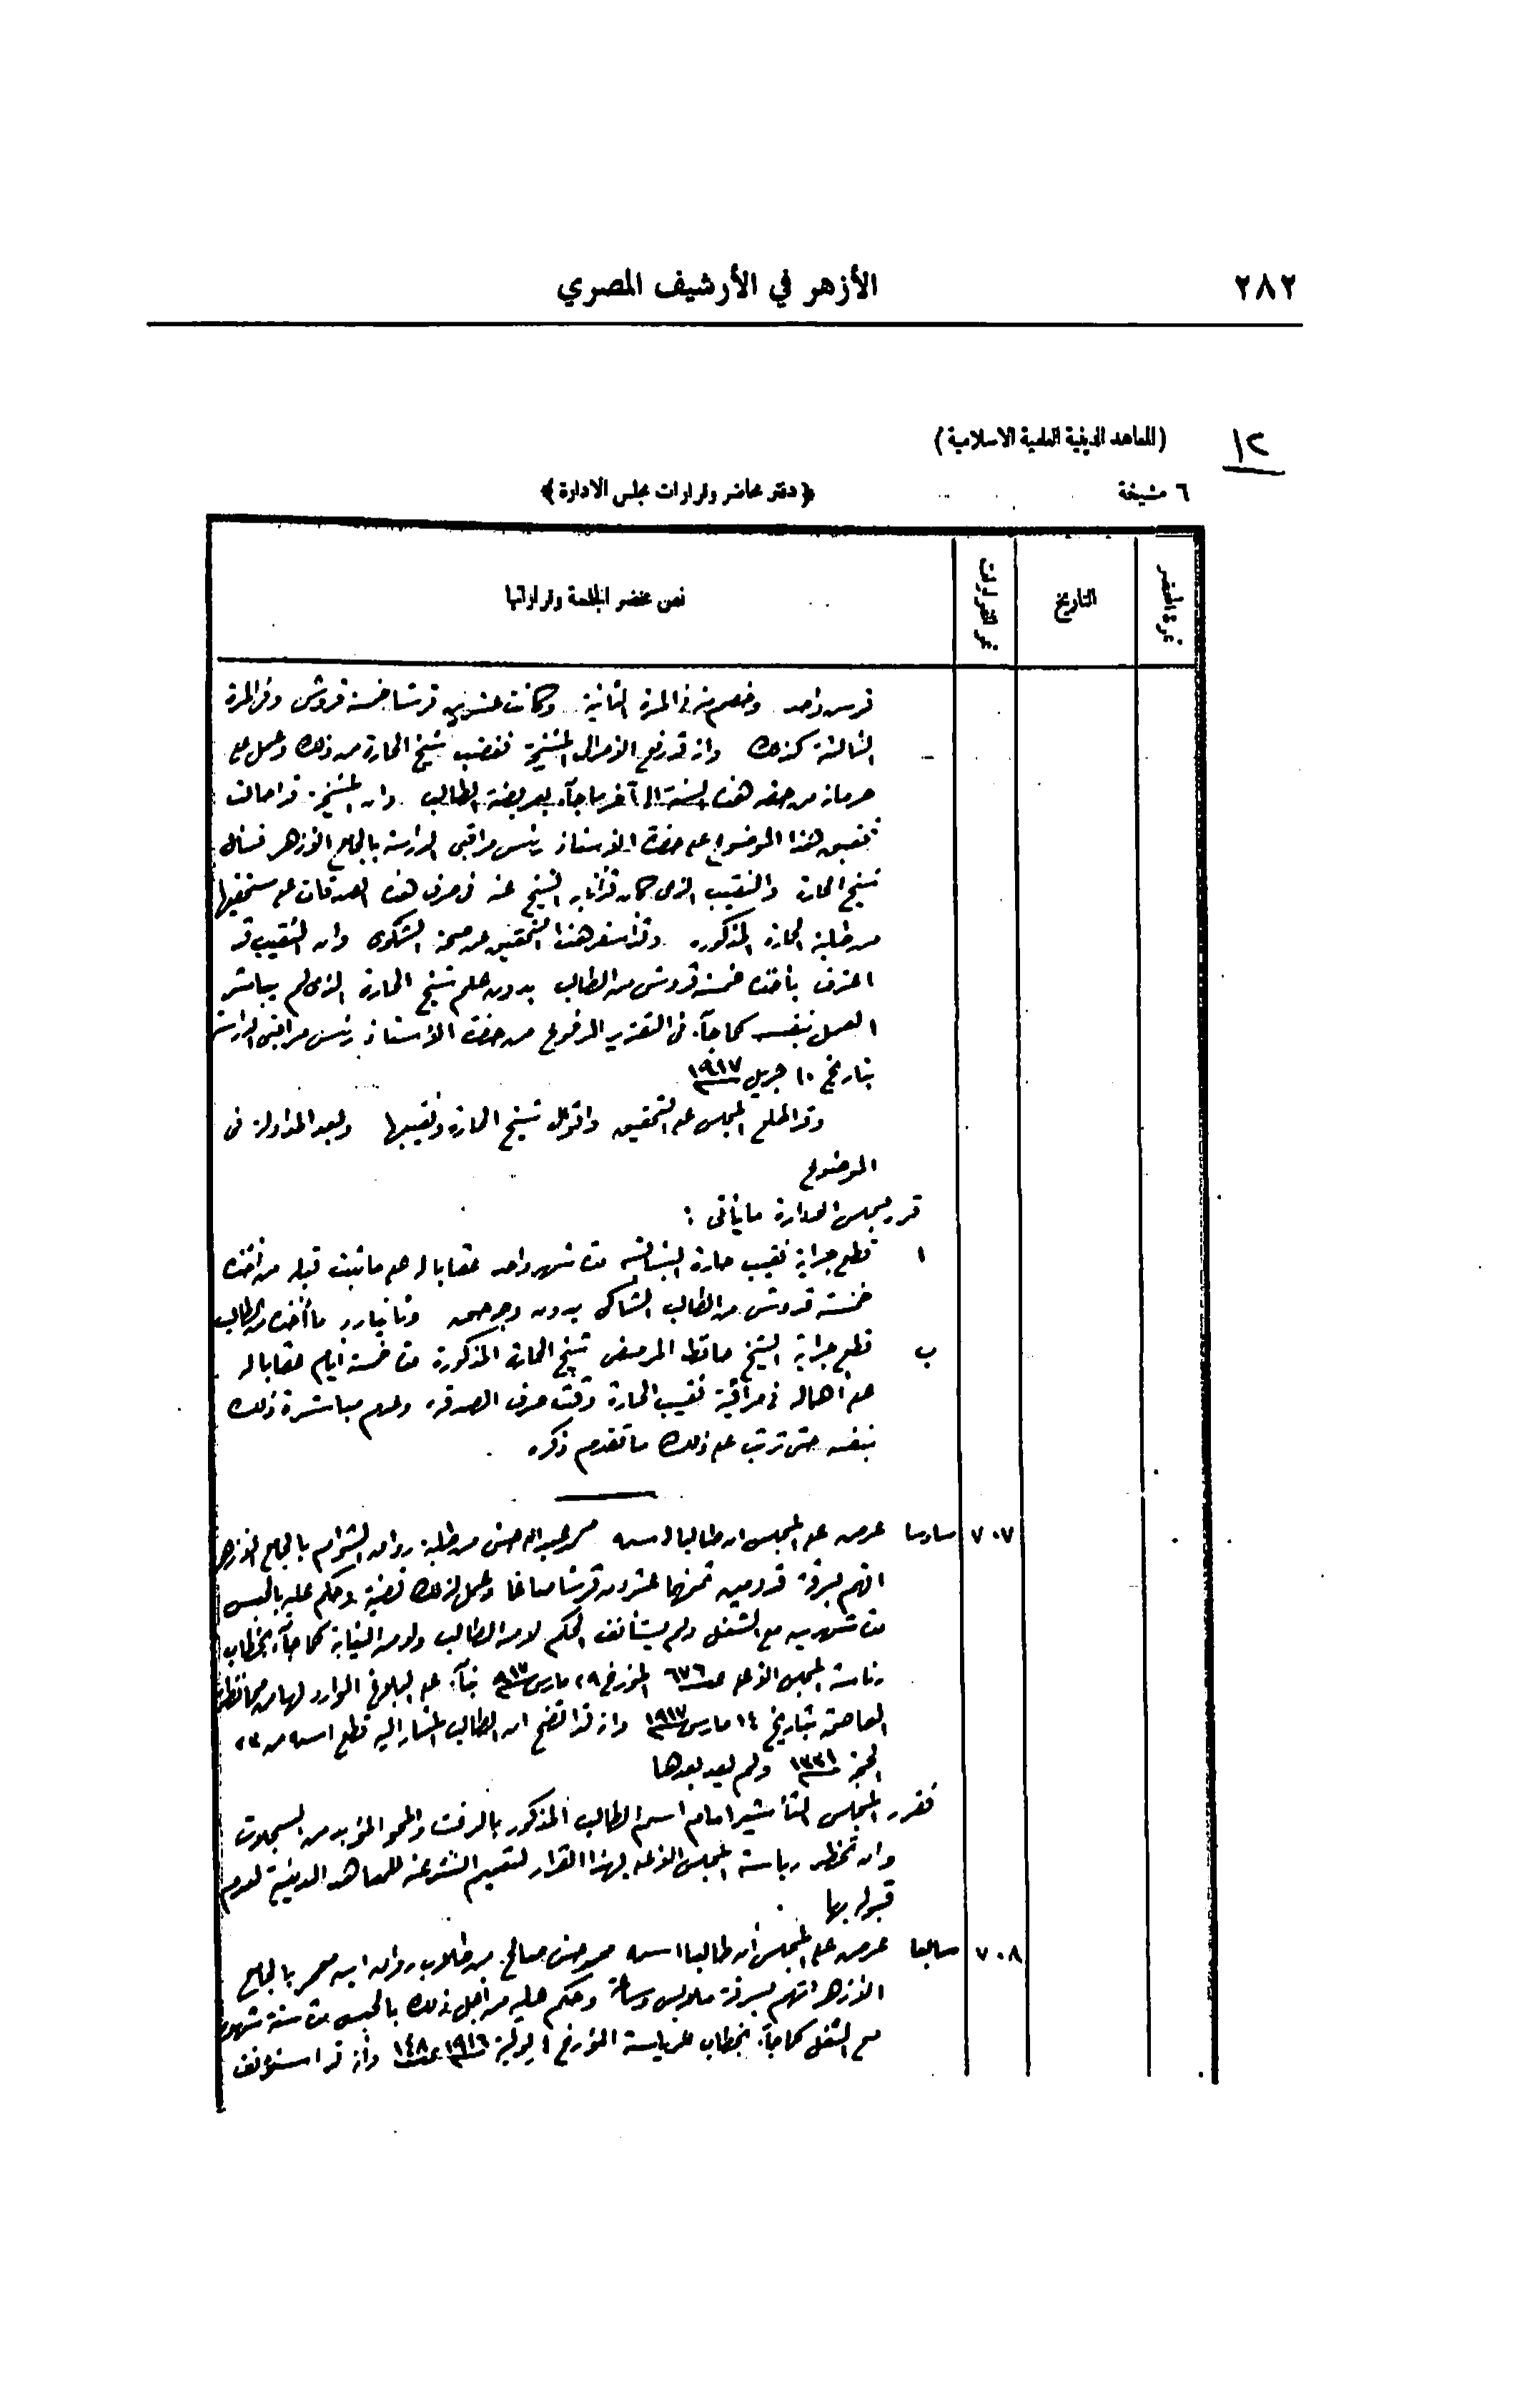 ٢٨٢
الأزهر في الأرشيف المصري
١٢
(المعاهد الدينية العلمية الاسلامية)
٦ مشيخة
﴿دفتر محاضر وقرارات مجلس الادارة﴾
نمرة المحضر
التاريخ
نمر القرارات
نص محضر الجلسة وقراراتها
قرش واحد وخصم منه فى المرة الثانية وكانت عشرين قرشا خمسة قروش وفى المرة
الثالثة كذلك وانه قد رفع الامر الى المشيخة فغضب شيخ الحارة من ذلك وعمل على
حرمانه من حقه هذه السنة الى آخر ما جآء بعريضة الطالب وان المشيخة قد احالت
تحقيق هذا الموضوع على حضرة الاستاذ رئيس مراقبى الدراسة بالجامع الازهر فسأل
شيخ الحارة والنقيب الذى كان قد انابه الشيخ عنه فى صرف هذه الصدقات على مستحقيها
من طلبة الحارة المذكوره وقد اسفر هذا التحقيق عن صحة الشكوى وان النقيب قد
اعترف بأخذه خمسة قروش من الطالب بدون علم شيخ الحارة الذى لم يباشر
العمل بنفسه كما جآء فى التقرير المرفوع من حضرة الاستاذ رئيس مراقبى الدراسة
بتاريخ ١٠ ابريل ١٩١٧
وقد اطلع المجلس على التحقيق واقوال شيخ الحارة ونقيبها وبعد المداولة فى
الموضوع
قرر مجلس الادارة ما يأتى :
ا قطع جراية نقيب حارة البشابشة مدة شهر واحد عقابا له على ما ثبت قبله من أخذه
خمسة قروش من الطالب الشاكى بدون وجه حق وثانيا رد ما أخذه من الطالب
ب قطع جراية الشيخ حافظ المرصفى شيخ الحارة المذكورة مدة خمسة أيام عقابا له
على اهماله فى مراقبة نقيب الحارة وقت صرف الصدقه وعدم مباشرة ذلك
بنفسه حتى ترتب على ذلك ما تقدم ذكره
٧٠٧ سادسا عرض على المجلس ان طالبا اسمه محمد عبد الله حسن من طلبة رواق الشوام بالجامع الازهر
اتهم بسرقة قدومين ثمنهما عشرون قرشا صاغا وعمل لذلك قضية وحكم عليه بالحبس
مدة شهرين مع الشغل ولم يستأنف الحكم لا من الطالب ولا من النيابة كما جآء بخطاب
رئاسة المجلس الاعلى نمرة ٦٧٦ المؤرخ ٢٩ مارس ٩١٧ بنآء على البلاغ الوارد لها من محافظة
العاصمة بتاريخ ١٤ مارس ١٩١٧ وانه قد اتضح ان الطالب المشار اليه قطع اسمه من ٢٣
الحجة ١٣٣١ ولم يعد بعدها
فقرر المجلس التأشير امام اسم الطالب المذكور بالرفت والمحو المؤبد من السجلات
وان تخطر رياسة المجلس الاعلى بهذا القرار لتعميم النشر عنه للمعاهد الدينية لعدم
قبوله بها
٧٠٨ سابعا عرض على المجلس أن طالبا اسمه محمد حسن صالح من طلاب رواق ابن معمر بالجامع
الازهر اتهم بسرقة ملابس وساعة وحكم عليه من اجل ذلك بالحبس مدة ستة شهور
مع الشغل كما جآء بخطاب الرياسة المؤرخ ١ يوليه ١٩١٦ نمرة ١٤٨ وأنه قد استؤنف